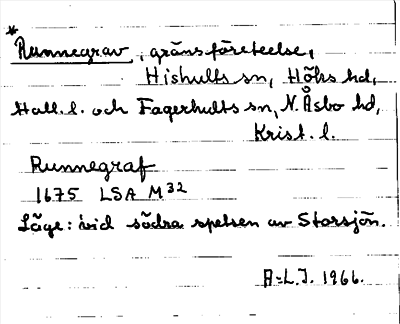 *
Runnegrav, gränsföreteelse,
Hishults sn, Höks hd,
Hall. l. och Fagerhults sn, N. Åsbo hd,
Krist. l.
Runnegraf
1675 LSA M³²
Läge: vid södra spetsen av Storsjön.
A-L.J. 1966.